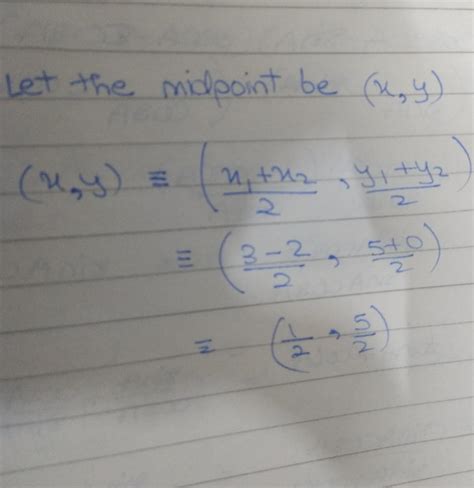 Let the midpoint be (x, y)
(x, y) ≡ (x₁+x₂/2, y₁+y₂/2)
≡ (3-2/2, 5+0/2)
= (1/2, 5/2)